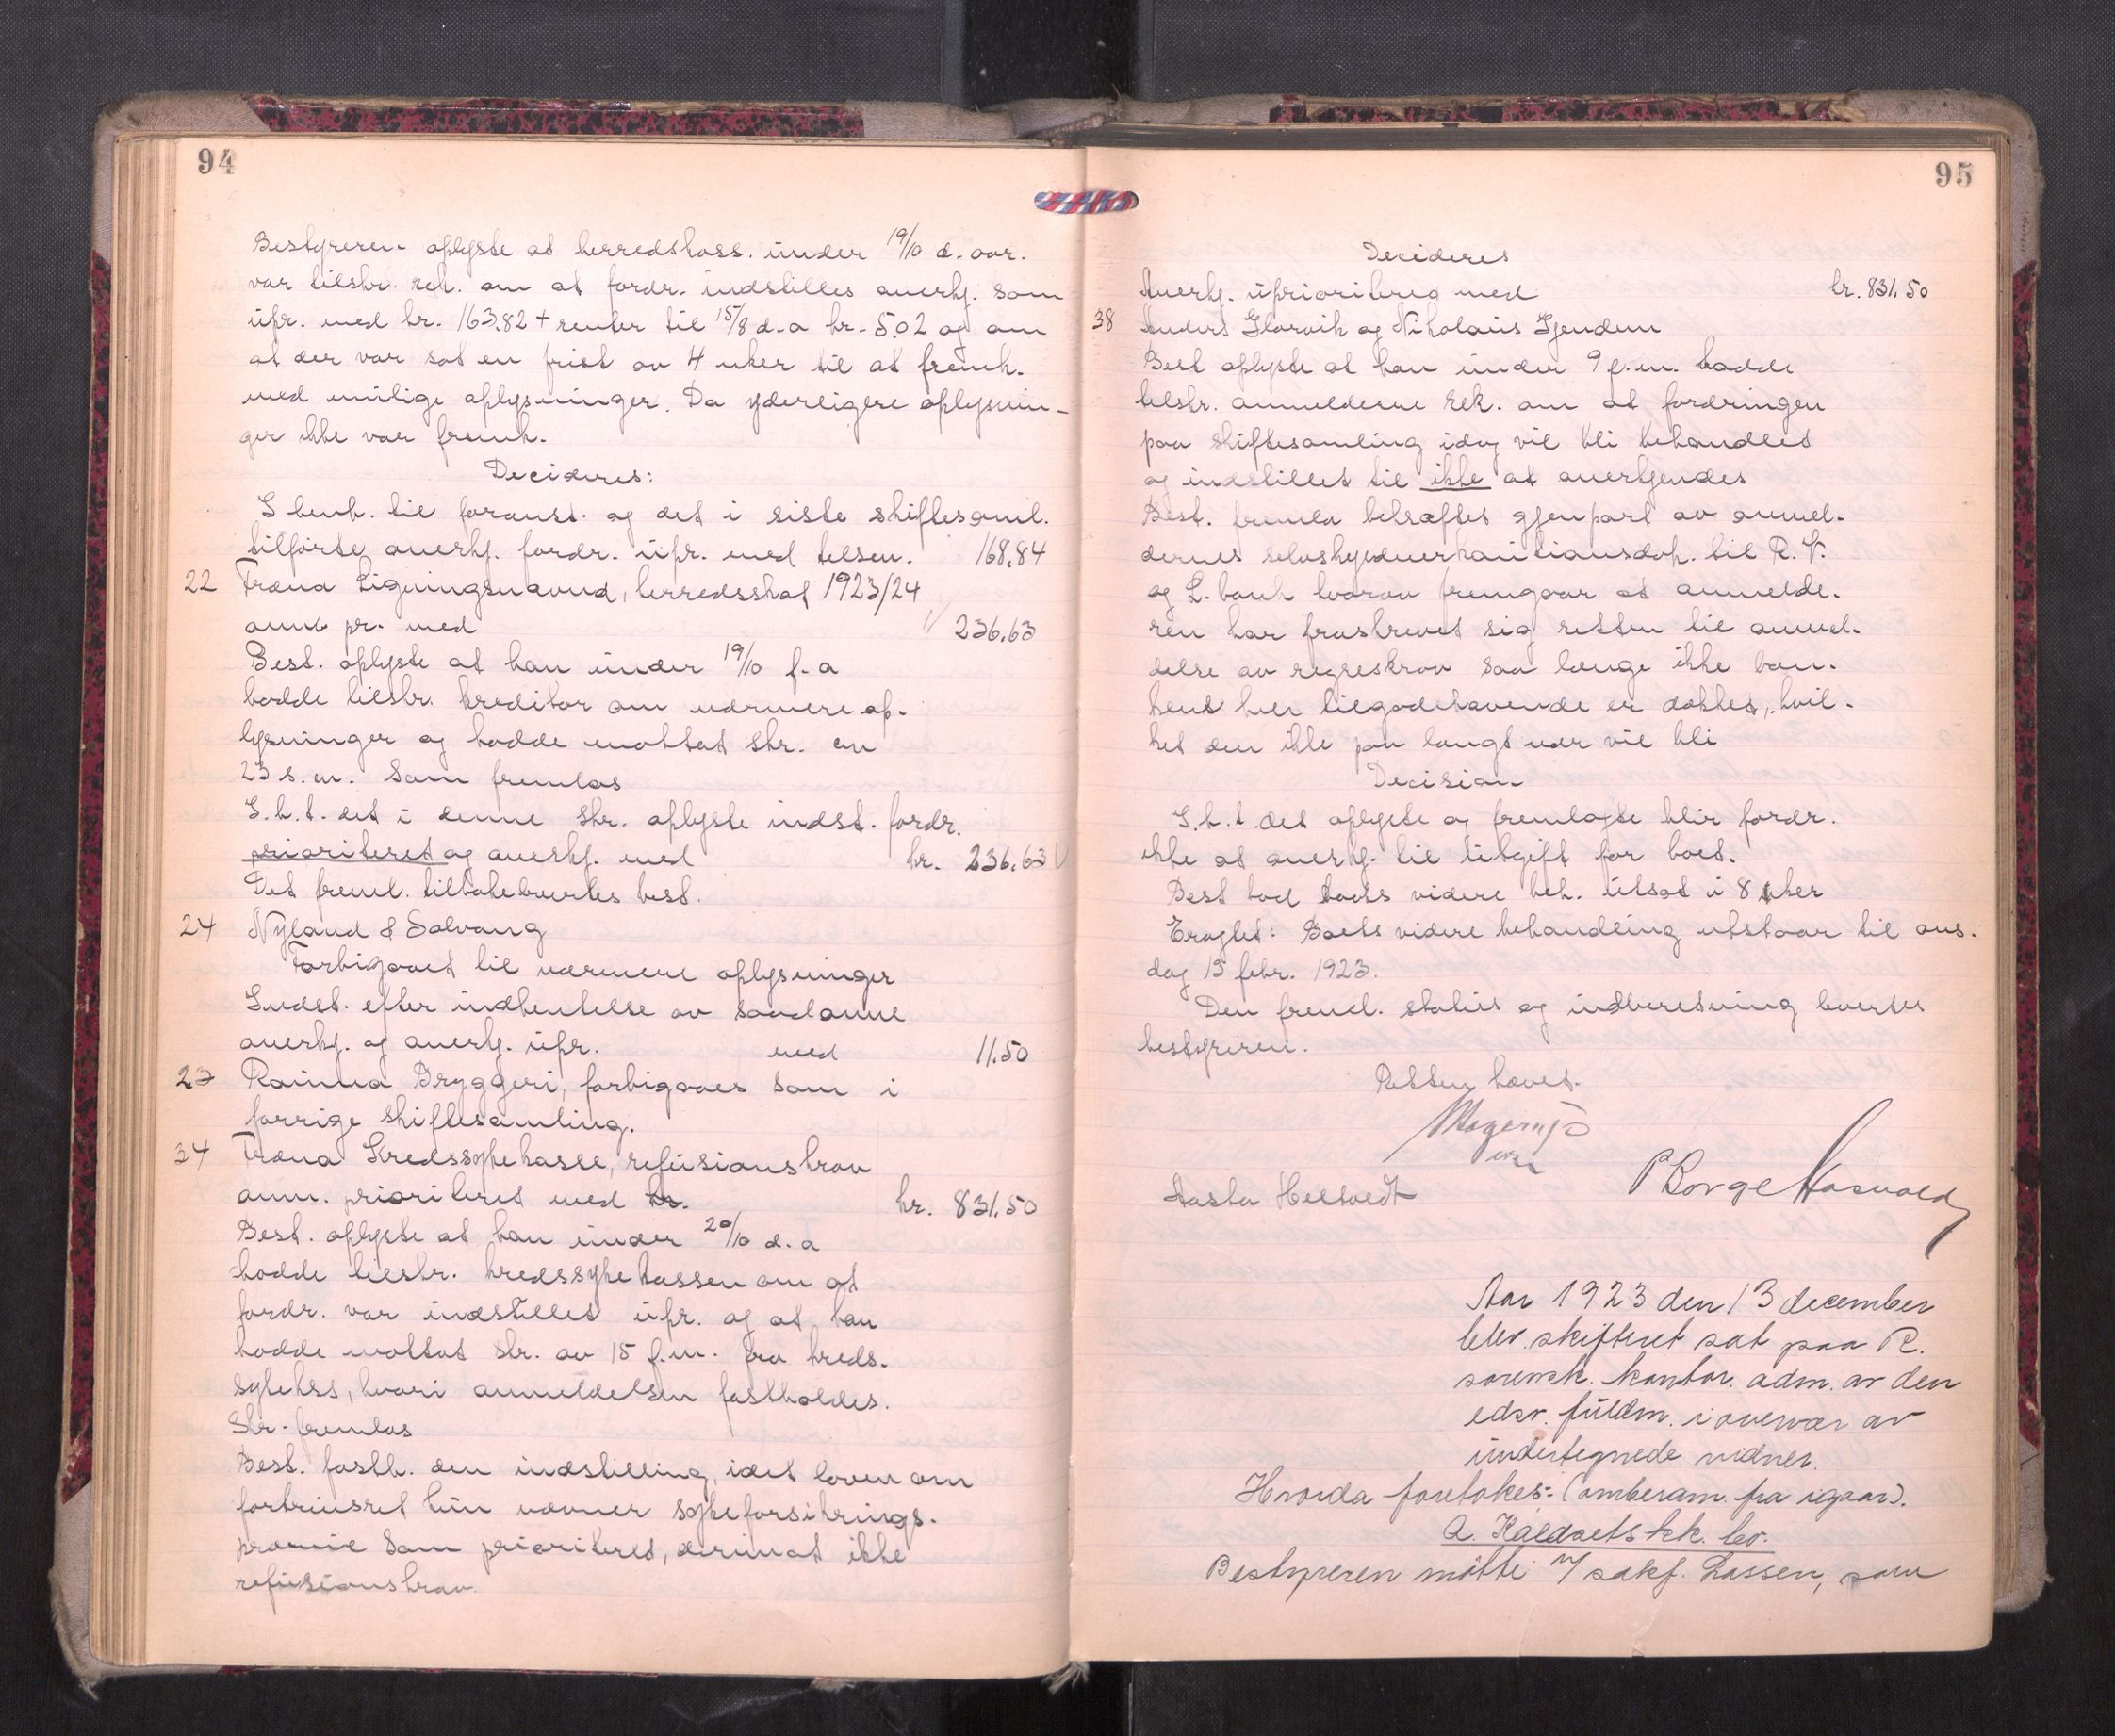 94
Bestyreren oplyste at herredskass. under 19/10 d. aar.
var tilskr. rek. om at fordr. indstilles anerkj. som
upr. med kr. 163.82 + renter til 15/8 d.a kr. 5.02 og om
at der var sat en frist av 4 uker til at fremk.
med mulige oplysninger. Da yderligere oplysnin-
ger ikke var fremk.
Decideres:
I henh. til foranst. og det i siste skiftesaml.
tilførte anerkj. fordr. upr. med tilsem. 168.84
22 Træna Ligningsnævnd, herredsskat 1923/24
anm pr. med 236.63
Best. oplyste at han under 19/10 f. a
hadde tilskr. kreditor om nærmere op-
lysninger og hadde mottat skr. av
23 s.m. som fremlas
I.h.t. det i denne skr. oplyste indst. fordr.
prioriteret og anerkj. med kr. 236.63
Det freml. tilbakelevertes best.
24 Nyland & Solvang
Forbigaaet til nærmere oplysninger
Indst. efter indhentelse av saadanne
anerkj. og anerkj. upr. med 11.50
27 Rainna Bryggeri, forbigaaes som i
forrige skiftesamling.
34 Træna Kredssykekasse, refusionskrav
anm. prioriteret med kr. kr. 831.50
Best. oplyste at han under 20/10 d. a
hadde tilskr. kredssykekassen om at
fordr. var indstillet upr. og at han
hadde mottat skr. av 15 f.m. fra kreds.
sykekss, hvori anmeldelsen fastholdes.
Skr. fremlas
Best. fasth. den indstilling, idet loven om
fortrinsret kun nævner sykeforsikrings.
præmie som prioriteret, derimot ikke
refusionskrav.
95
Decideres
Anerkj. uprioritereg med kr. 831.50
38 Anders Glarvik og Nikolaus Gjendem
Best oplyste at han under 9 f.m. hadde
tilskr. anmelderne rek. om at fordringen
paa skiftesamling idag vil bli behandlet
og indstillet til ikke at anerkjendes
Best. fremla bekræftet gjenpart av anmel-
dernes selvskyldnerkautionsdok. til R. V.
og L. bank hvorav fremgaar at anmelde-
ren har fraskrevet sig retten til anmel-
delse av regreskrav saa længe ikke ban-
kens hele tilgodehavende er dækket, hvil-
ket den ikke paa langt nær vil bli
Decision
I.h.t det oplyste og fremlagte blir fordr.
ikke at anerkj. til utgift for boet.
Best bad boets videre beh. utsat i 8 uker
Eragtet: Boets videre behandling utstaar til ons.
dag 13 febr. 1923.
Den freml. status og indberetning levertes
bestyreren.
Retten hævet.
Aasta Heltvedt
P Borge Hasvold
Aar 1923 den 13 december
blev skifteret sat paa R.
sorensk. kontor. adm. av den
edsv. fuldm. i overvær av
undertegnede vidner.
Hvorda foretokes: (omberam. fra igaar).
A. Kaldsets kk. bo.
Bestyreren møtte v/ sakf. Lassen, som